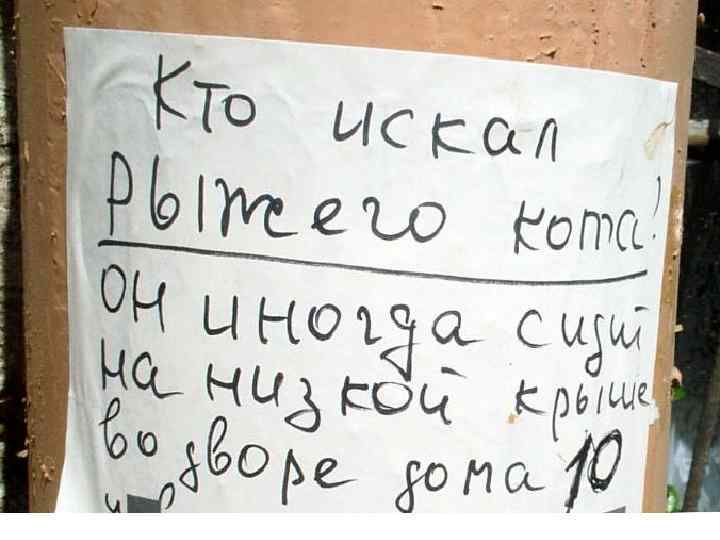 Кто искал
Рыжего кота!
он иногда сидит
на низкой крыше
во дворе дома 10